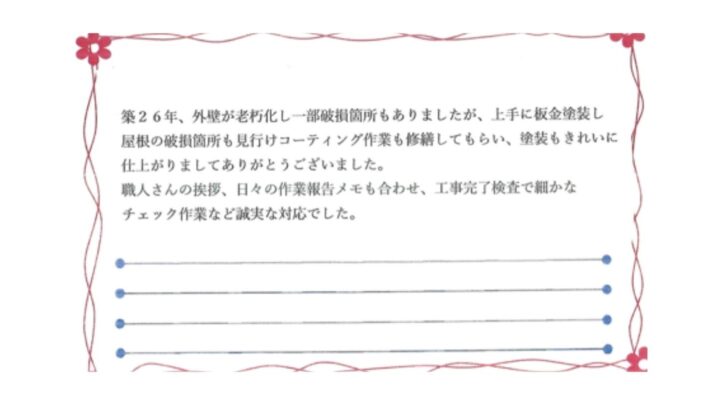 築２６年、外壁が老朽化し一部破損箇所もありましたが、上手に板金塗装し
屋根の破損箇所も見行けコーティング作業も修繕してもらい、塗装もきれいに
仕上がりましてありがとうございました。
職人さんの挨拶、日々の作業報告メモも合わせ、工事完了検査で細かな
チェック作業など誠実な対応でした。